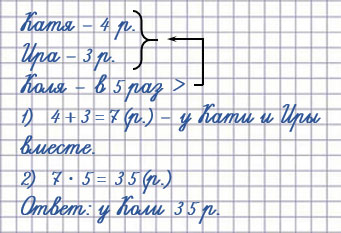 Катя – 4 р.
Ира – 3 р.
Коля – в 5 раз >
1) 4 + 3 = 7 (р.) – у Кати и Иры
вместе.
2) 7 · 5 = 35 (р.)
Ответ: у Коли 35 р.